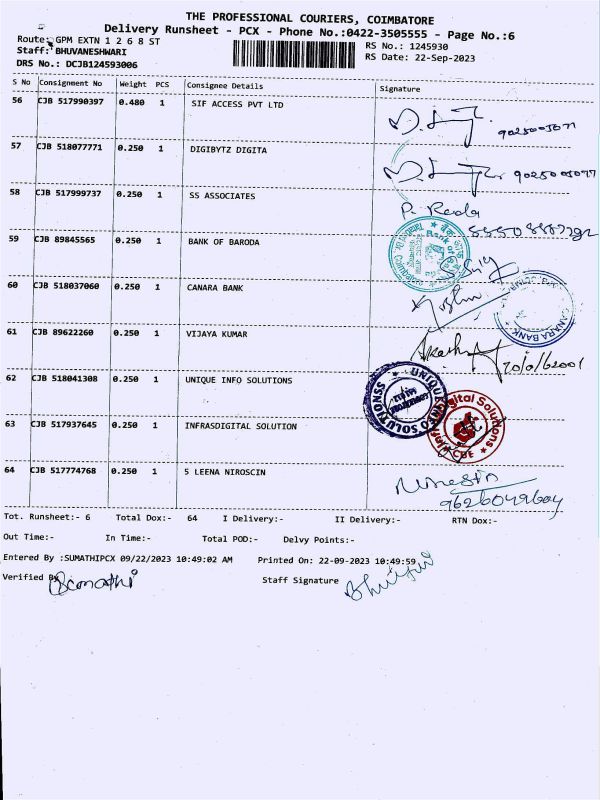 THE PROFESSIONAL COURIERS, COIMBATORE
Delivery Runsheet - PCX - Phone No.:0422-3505555 - Page No.:6
Route: GPM EXTN 1 2 6 8 ST
RS No.: 1245930
Staff: BHUVANESHWARI
RS Date: 22-Sep-2023
DRS No.: DCJB124593006
S No Consignment No Weight PCS Consignee Details Signature
56 CJB 517990397 0.480 1 SIF ACCESS PVT LTD
57 CJB 518077771 0.250 1 DIGIBYTZ DIGITA
58 CJB 517999737 0.250 1 SS ASSOCIATES
59 CJB 89845565 0.250 1 BANK OF BARODA
60 CJB 518037060 0.250 1 CANARA BANK
CANARA BANK
61 CJB 89622260 0.250 1 VIJAYA KUMAR
62 CJB 518041308 0.250 1 UNIQUE INFO SOLUTIONS
UNIQUE INFO SOLUTIONSS
63 CJB 517937645 0.250 1 INFRASDIGITAL SOLUTION
CBE
64 CJB 517774768 0.250 1 S LEENA NIROSCIN
9626049604
Tot. Runsheet:- 6 Total Dox:- 64 I Delivery:- II Delivery:- RTN Dox:-
Out Time:- In Time:- Total POD:- Delvy Points:-
Entered By :SUMATHIPCX 09/22/2023 10:49:02 AM Printed On: 22-09-2023 10:49:59
Verified By
Staff Signature